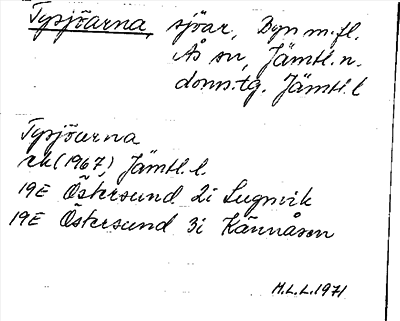 Tysjöarna, sjöar, Byn m.fl.
Ås sn, Jämtl. n.
doms.tg. Jämtl. l
Tysjöarna
rk (1967) Jämtl. l.
19E Östersund 2i Lugnvik
19E Östersund 3i Kännåsen
M.L.L. 1971